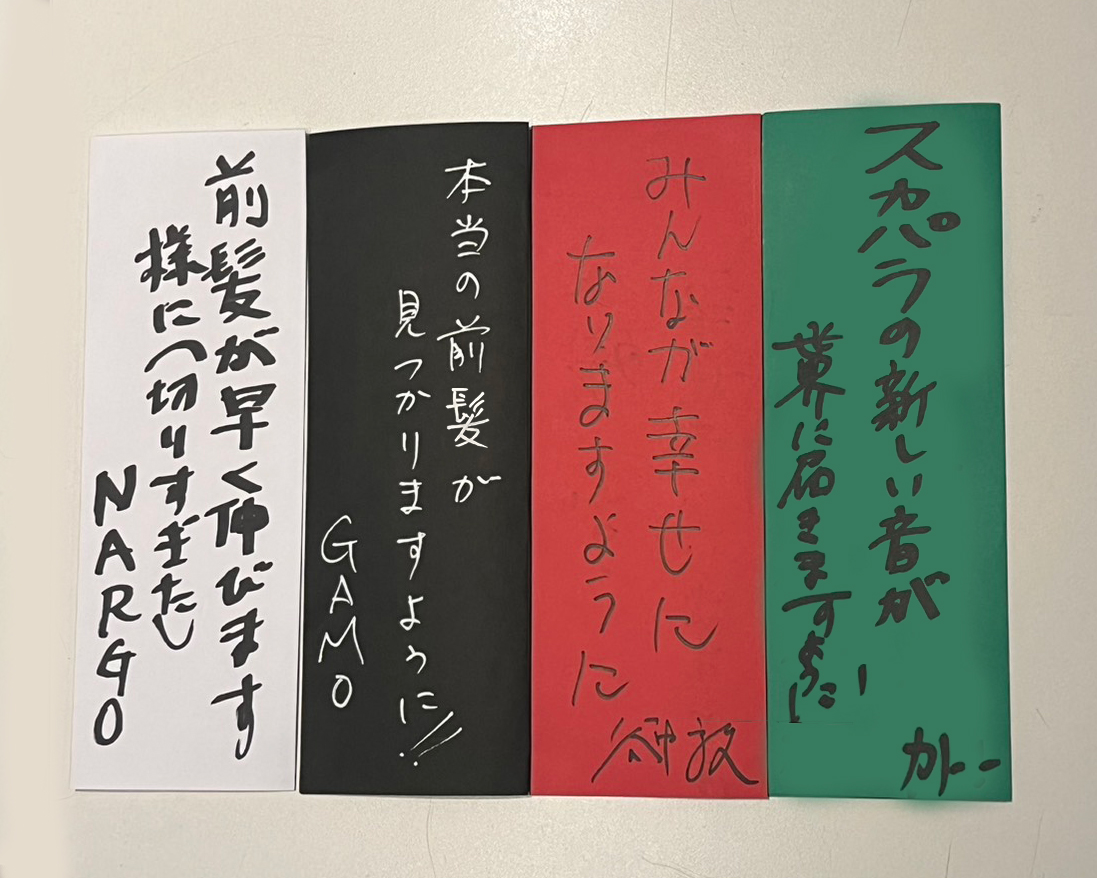 スカパラの新しい音が
世界に届きますように
カトー
みんなが幸せに
なりますように
谷中敦
本当の前髪が
見つかりますように!!
GAMO
前髪が早く伸びます
様に(切りすぎた)
NARGO